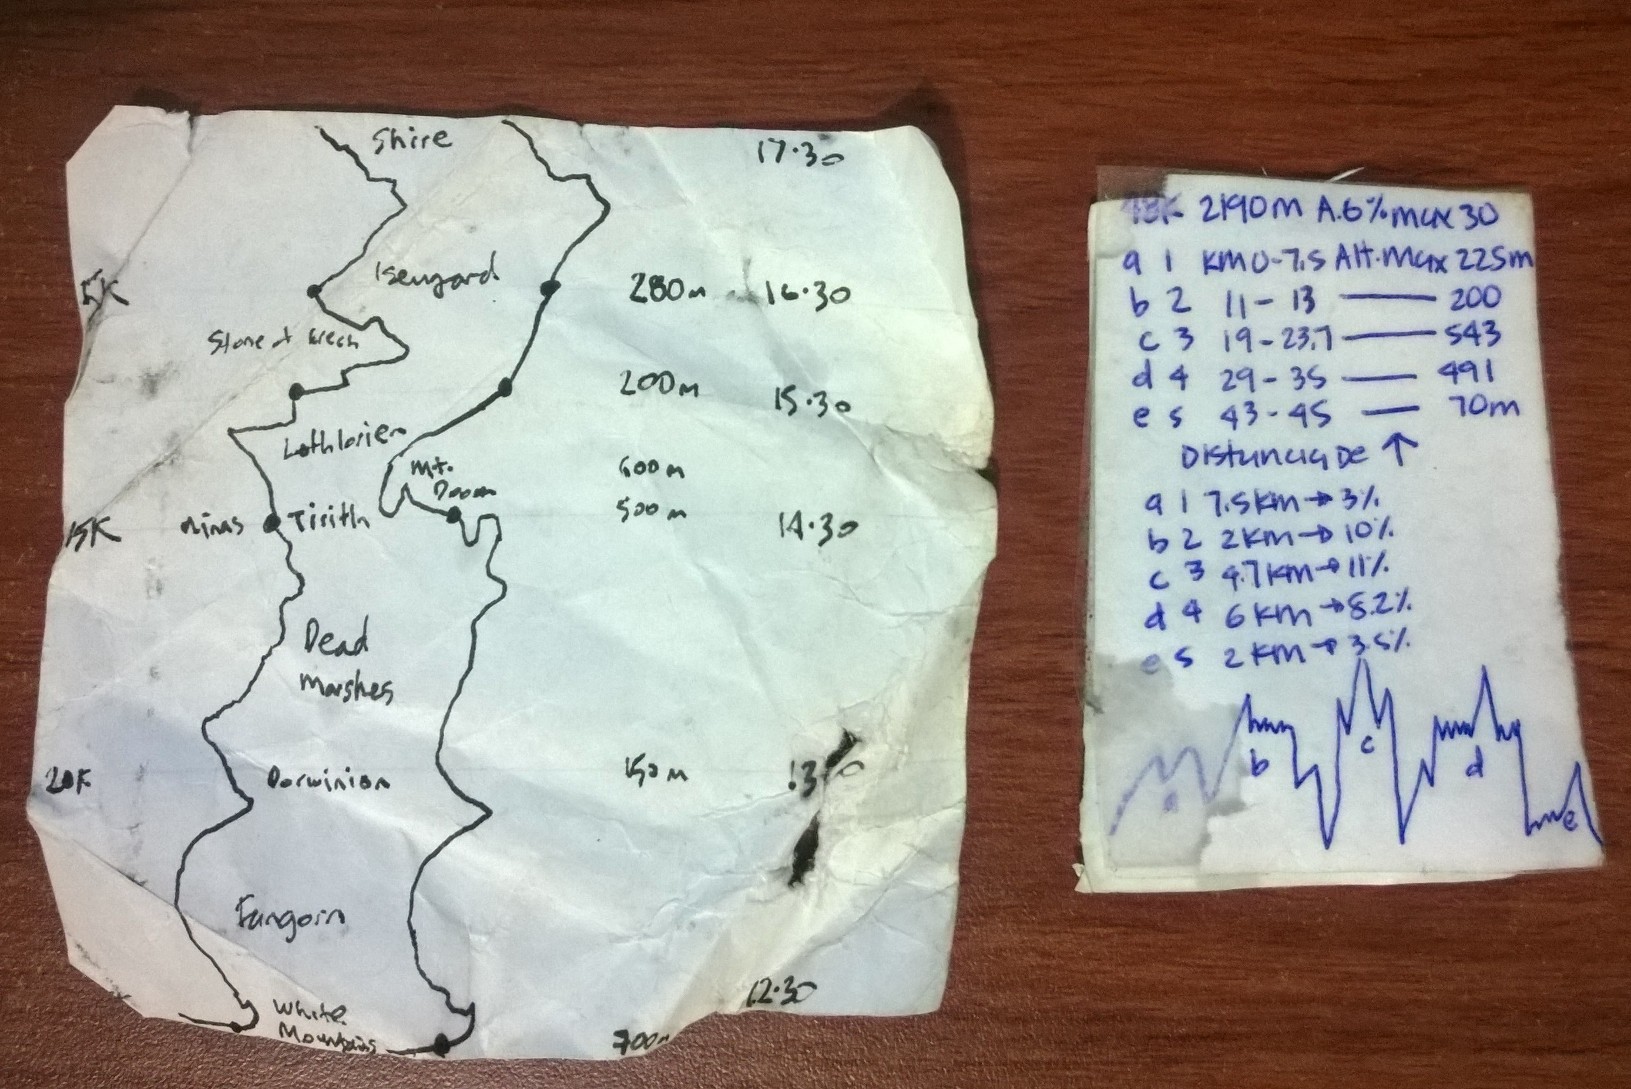 Shire 17.30
5K Isengard 280m 16.30
Stone & Wreck
200m 15.30
Lothlorien
Mt. 600m
Doom
15K Minas Tirith 500m 14.30
Dead
Marshes
20K Dorwinion 150m 13
Fangorn
12.30
White
Mountains 700m
2190m A.6% max 30
a 1 Km 0-7.5 Alt. Max 225m
b 2 11 - 13 —— 200
c 3 19 - 23.7 —— 543
d 4 29 - 35 —— 491
e 5 43 - 45 —— 70m
Distancia De ↑
a 1 7.5km → 3%
b 2 2km → 10%
c 3 4.7km → 11%
d 4 6km → 8.2%
e 5 2km → 3.5%
a b c d e